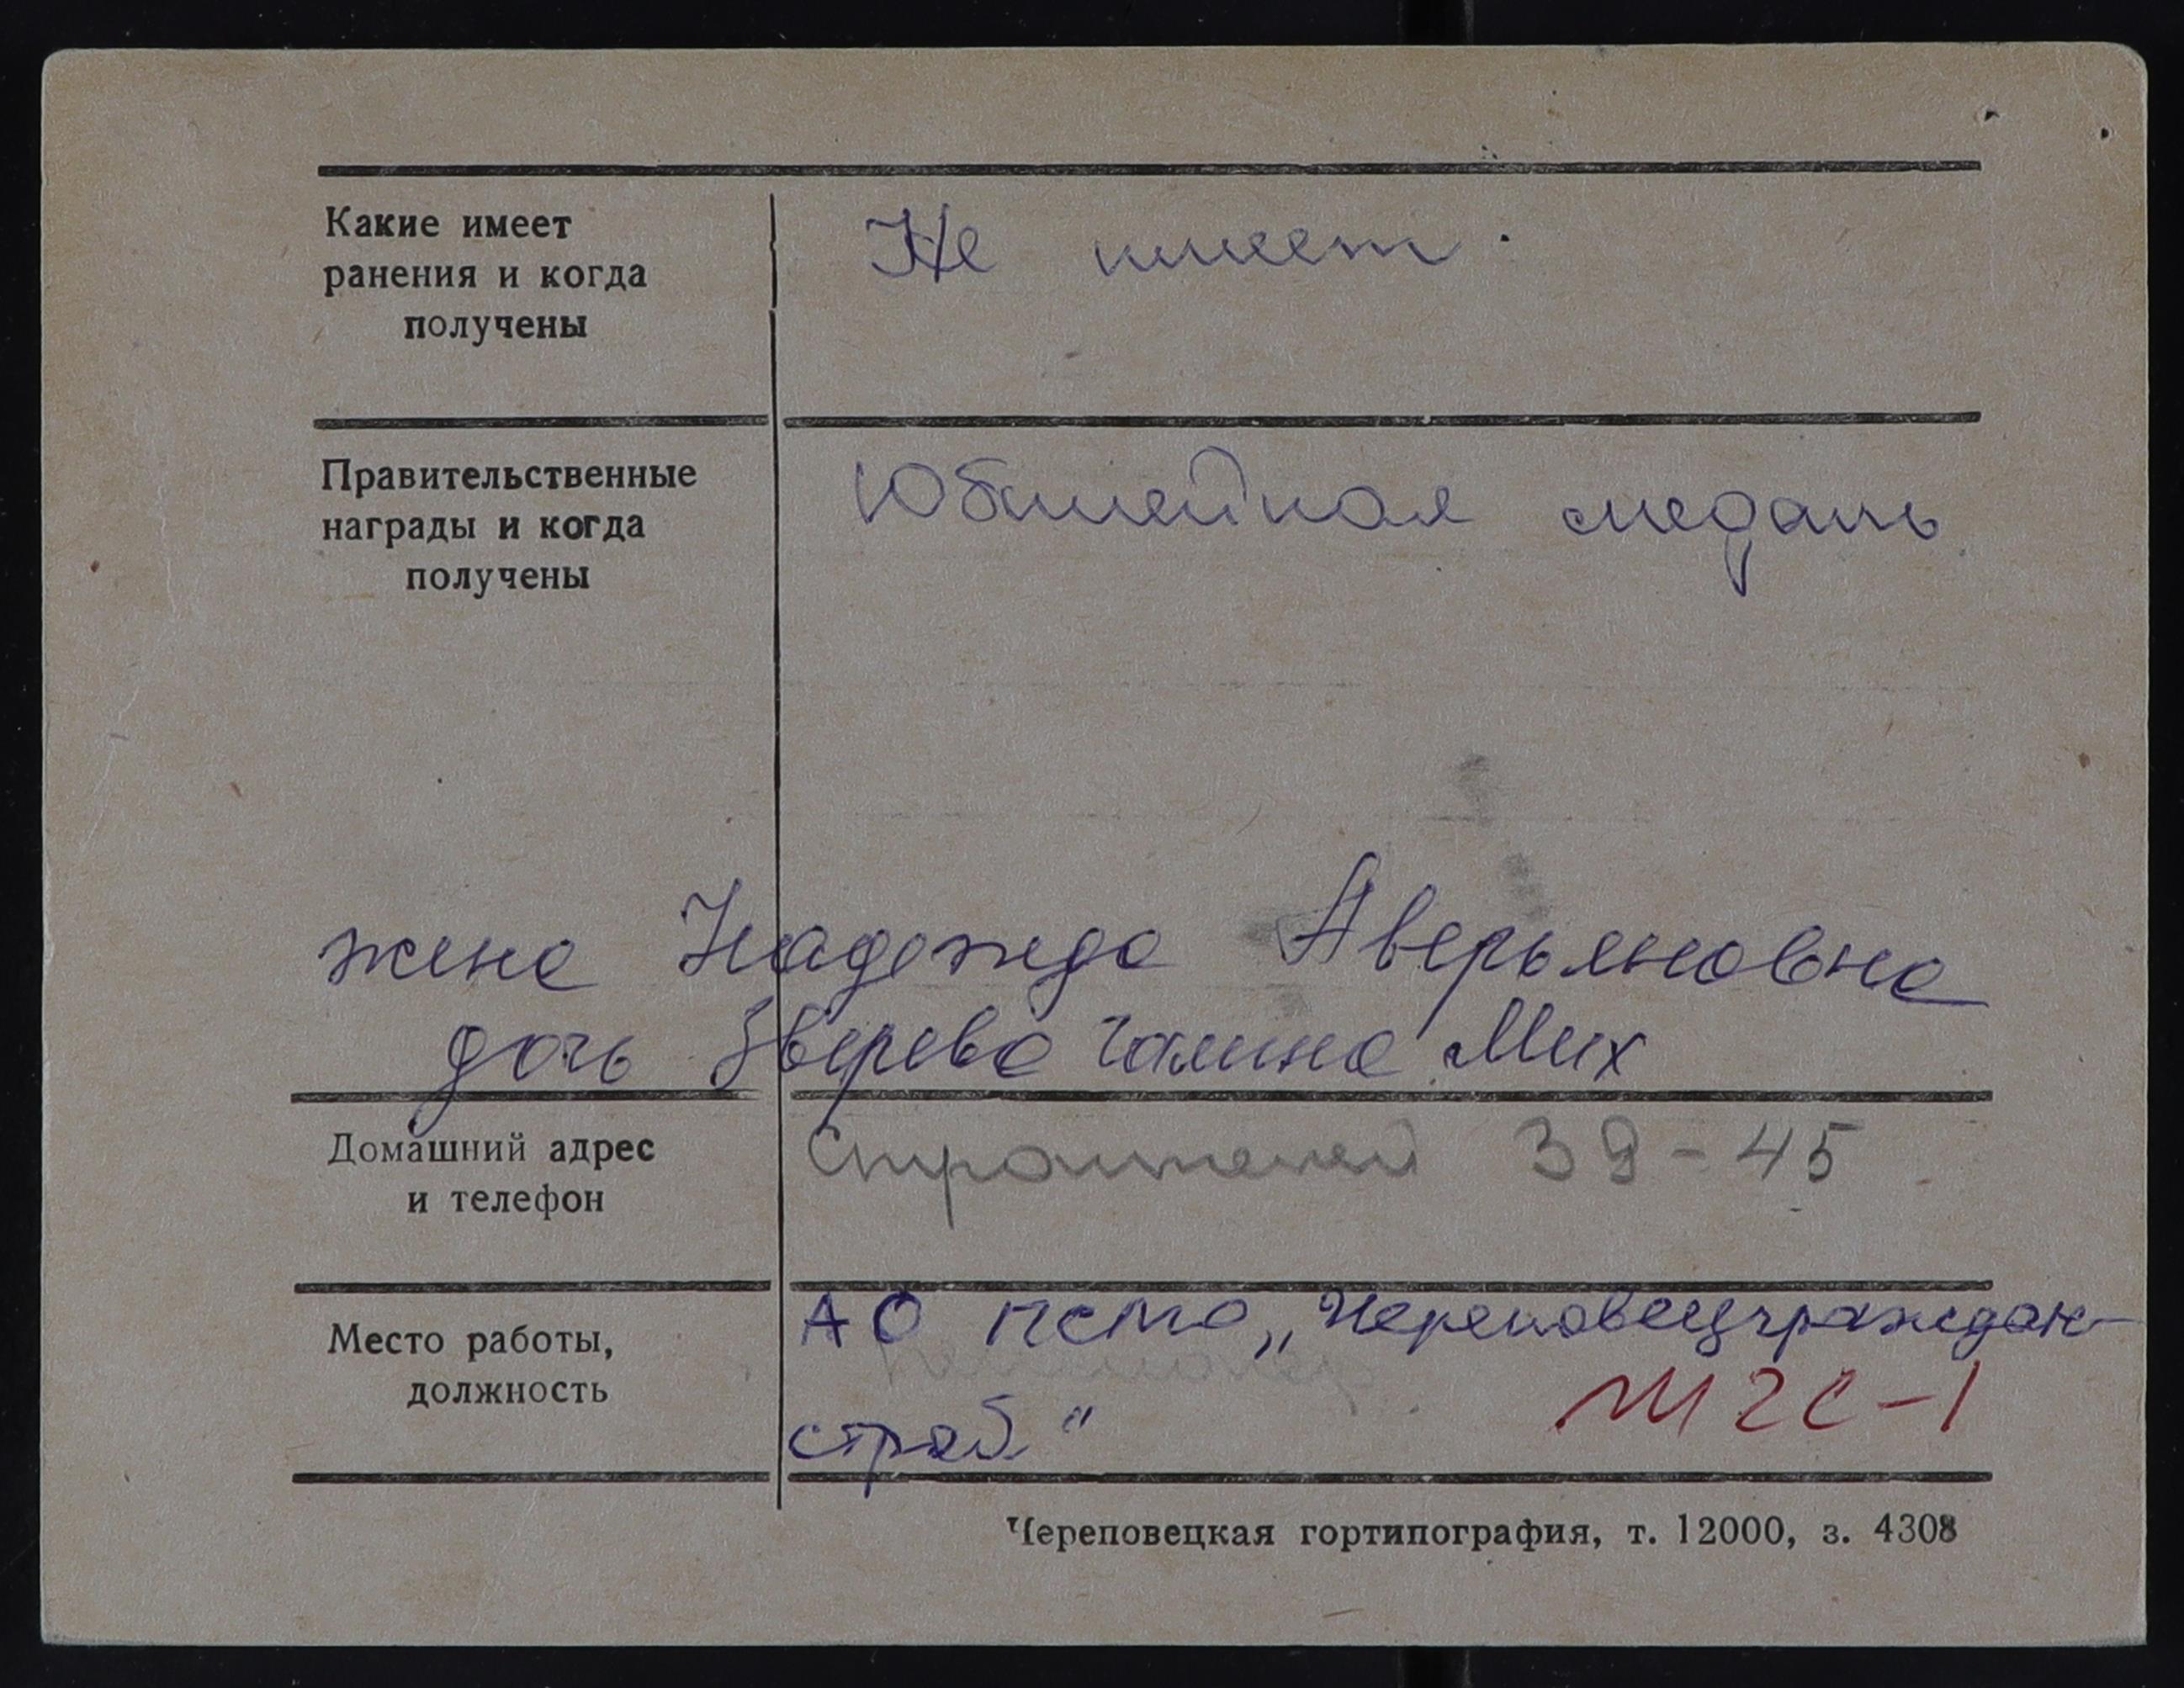 Какие имеет
ранения и когда
получены
Не имеет.
Правительственные
награды и когда
получены
Юбилейная медаль
жена Надежда Аверьяновна
дочь Зверева Галина Мих
Домашний адрес
и телефон
Строителей 39-45
Место работы,
должность
АО ПСМО „Череповецграждан-
строй"
Череповецкая гортипография, т. 12000, з. 4308